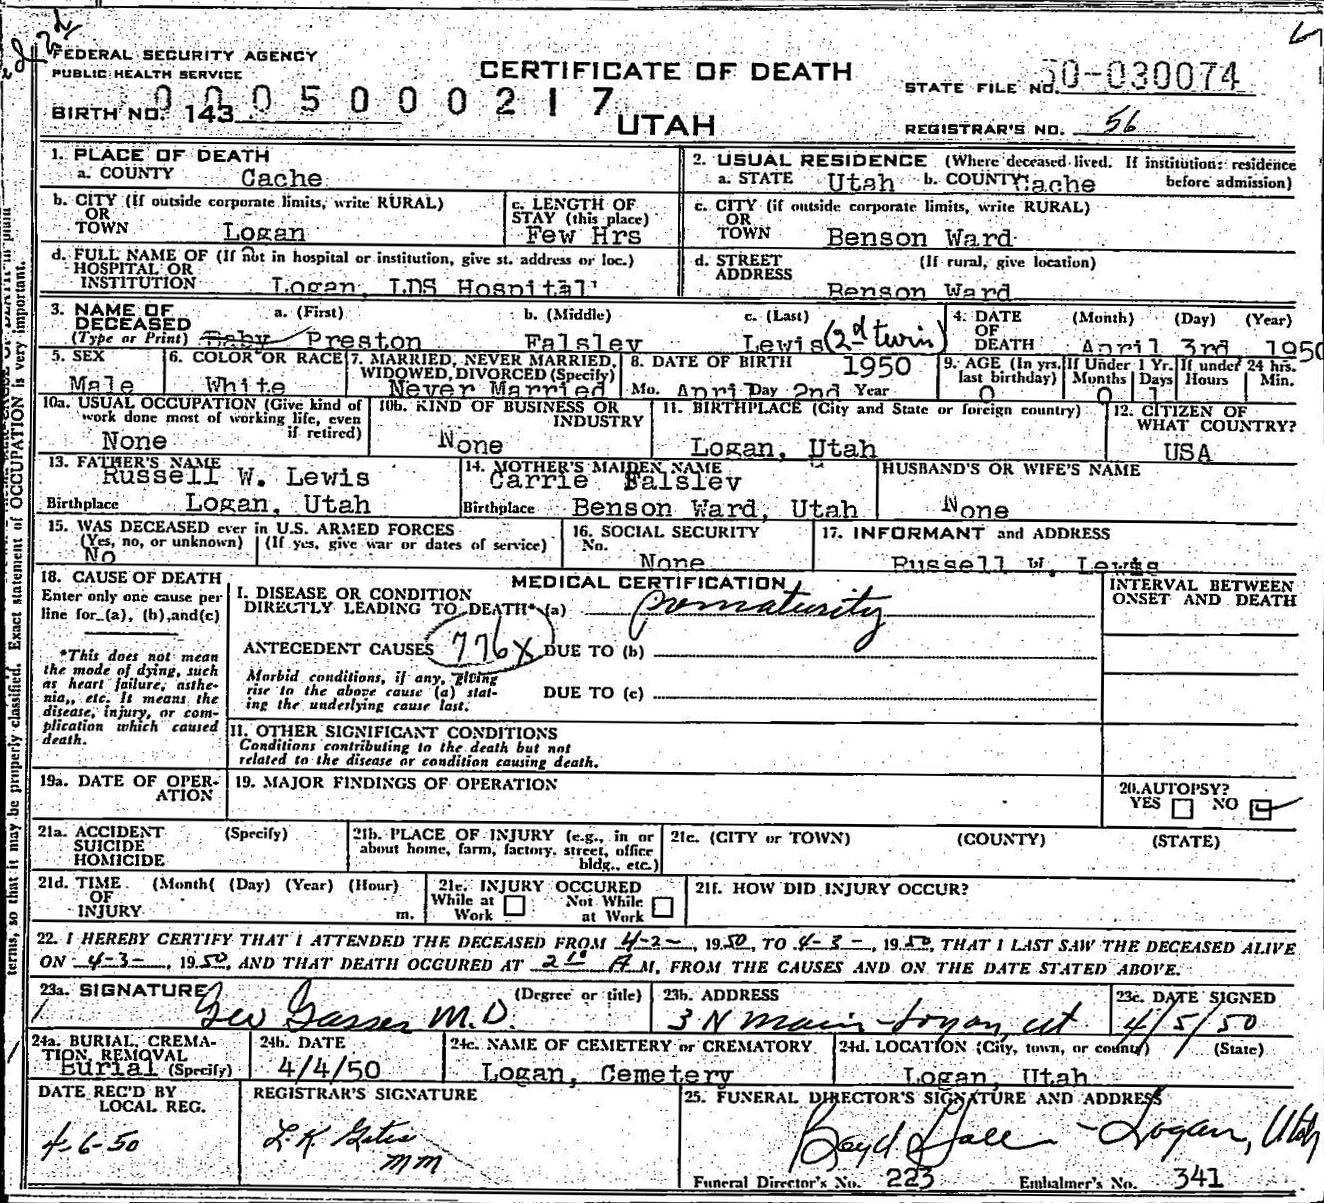 FEDERAL SECURITY AGENCY
PUBLIC HEALTH SERVICE
CERTIFICATE OF DEATH
UTAH
STATE FILE NO. 50-030074
BIRTH NO. 143
0005000217
REGISTRAR'S NO. 56
1. PLACE OF DEATH
a. COUNTY Cache
2. USUAL RESIDENCE (Where deceased lived. If institution: residence before admission)
a. STATE Utah b. COUNTY Cache
b. CITY (If outside corporate limits, write RURAL)
OR
TOWN Logan
c. LENGTH OF
STAY (this place)
Few Hrs
c. CITY (if outside corporate limits, write RURAL)
OR
TOWN Benson Ward
d. FULL NAME OF (If not in hospital or institution, give st. address or loc.)
HOSPITAL OR
INSTITUTION Logan, LDS Hospital
d. STREET (If rural, give location)
ADDRESS
Benson Ward
3. NAME OF
DECEASED
(Type or Print)
a. (First) b. (Middle) c. (Last)
Baby Preston Falslev Lewis (2d twin)
4. DATE (Month) (Day) (Year)
OF
DEATH April 3rd 1950
5. SEX
Male
6. COLOR OR RACE
White
7. MARRIED, NEVER MARRIED,
WIDOWED, DIVORCED (Specify)
Never Married
8. DATE OF BIRTH 1950
Mo. April Day 2nd Year
9. AGE (In yrs. last birthday) 0
If Under 1 Yr. Months 0 Days 1
If under 24 hrs. Hours Min.
10a. USUAL OCCUPATION (Give kind of
work done most of working life, even
if retired)
None
10b. KIND OF BUSINESS OR
INDUSTRY
None
11. BIRTHPLACE (City and State or foreign country)
Logan, Utah
12. CITIZEN OF
WHAT COUNTRY?
USA
13. FATHER'S NAME
Russell W. Lewis
Birthplace Logan, Utah
14. MOTHER'S MAIDEN NAME
Carrie Falslev
Birthplace Benson Ward, Utah
HUSBAND'S OR WIFE'S NAME
None
15. WAS DECEASED ever in U.S. ARMED FORCES
(Yes, no, or unknown) (If yes, give war or dates of service)
No
16. SOCIAL SECURITY
No.
None
17. INFORMANT and ADDRESS
Russell W. Lewis
18. CAUSE OF DEATH
Enter only one cause per
line for (a), (b), and (c)
*This does not mean
the mode of dying, such
as heart failure, asthe-
nia,, etc. It means the
disease, injury, or com-
plication which caused
death.
MEDICAL CERTIFICATION
I. DISEASE OR CONDITION
DIRECTLY LEADING TO DEATH* (a) prematurity
ANTECEDENT CAUSES 776x DUE TO (b)
Morbid conditions, if any, giving
rise to the above cause (a) stat-
ing the underlying cause last.
DUE TO (c)
II. OTHER SIGNIFICANT CONDITIONS
Conditions contributing to the death but not
related to the disease or condition causing death.
INTERVAL BETWEEN
ONSET AND DEATH
19a. DATE OF OPER-
ATION
19. MAJOR FINDINGS OF OPERATION
20. AUTOPSY?
YES NO
21a. ACCIDENT (Specify)
SUICIDE
HOMICIDE
21b. PLACE OF INJURY (e.g., in or
about home, farm, factory, street, office
bldg., etc.)
21c. (CITY or TOWN) (COUNTY) (STATE)
21d. TIME (Month( (Day) (Year) (Hour)
OF
INJURY m.
21e. INJURY OCCURED
While at Work
Not While at Work
21f. HOW DID INJURY OCCUR?
22. I HEREBY CERTIFY THAT I ATTENDED THE DECEASED FROM 4-2-, 1950, TO 4-3-, 1950, THAT I LAST SAW THE DECEASED ALIVE
ON 4-3-, 1950, AND THAT DEATH OCCURED AT 2 10 A M, FROM THE CAUSES AND ON THE DATE STATED ABOVE.
23a. SIGNATURE (Degree or title)
Geo Gasser M.D.
23b. ADDRESS
3 N main - Logan, ut
23c. DATE SIGNED
4/5/50
24a. BURIAL, CREMA-
TION, REMOVAL
Burial (Specify)
24b. DATE
4/4/50
24c. NAME OF CEMETERY or CREMATORY
Logan, Cemetery
24d. LOCATION (City, town, or county) (State)
Logan, Utah
DATE REC'D BY
LOCAL REG.
4-6-50
REGISTRAR'S SIGNATURE
L.K Gates
mm
25. FUNERAL DIRECTOR'S SIGNATURE AND ADDRESS
Boyd Hall - Logan, Utah
Funeral Director's No. 223 Embalmer's No. 341
terms, so that it may be properly classified. Exact statement of OCCUPATION is very important.